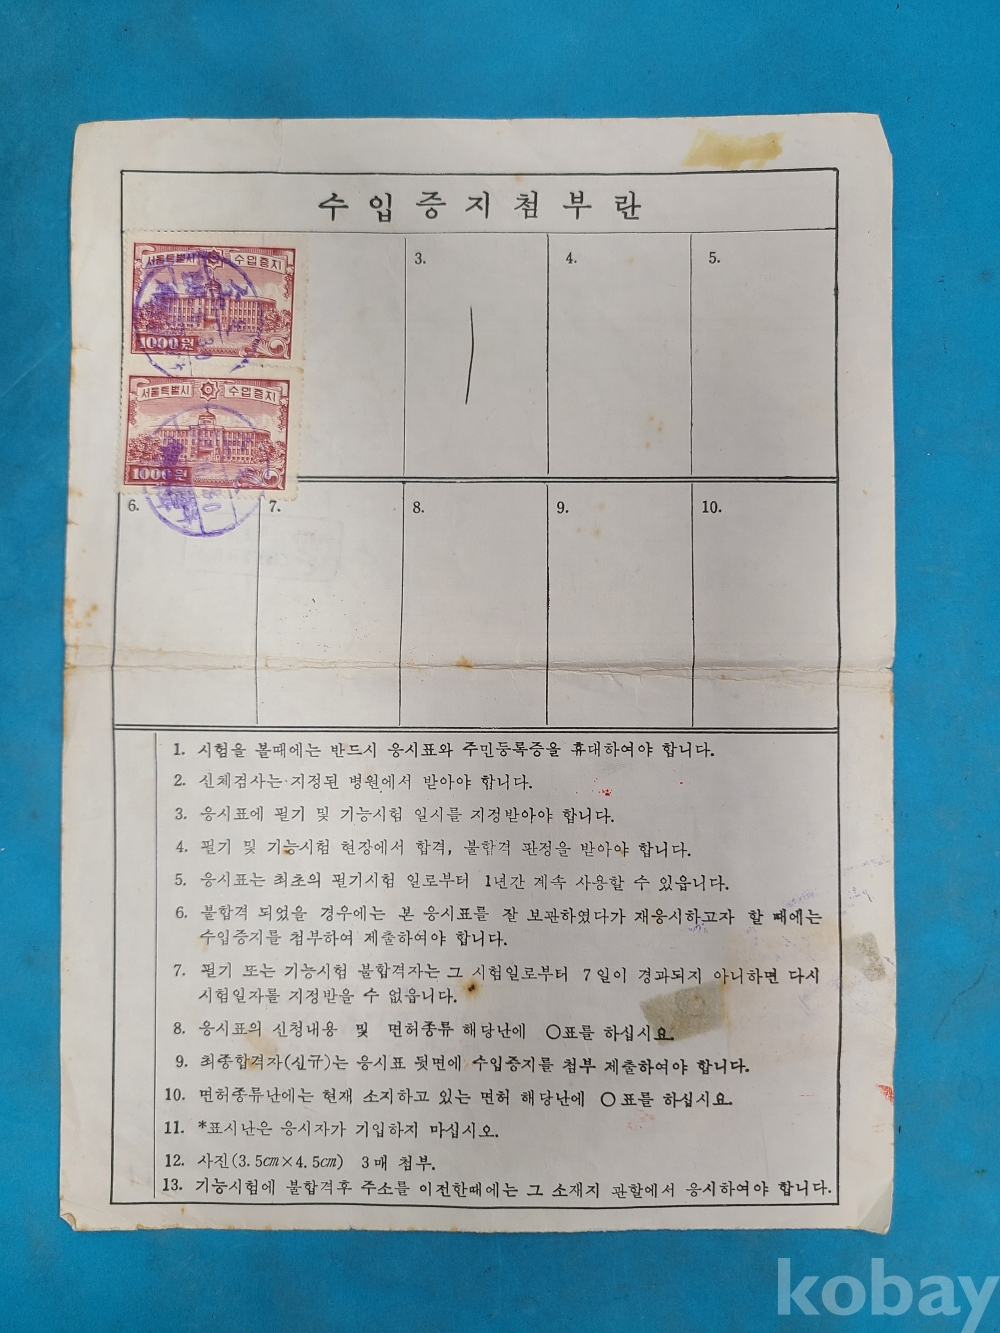 수입증지첨부란
서울특별시 수입증지
1000원
서울특별시 수입증지
1000원
3.
4.
5.
6.
7.
8.
9.
10.
1. 시험을 볼때에는 반드시 응시표와 주민등록증을 휴대하여야 합니다.
2. 신체검사는 지정된 병원에서 받아야 합니다.
3. 응시표에 필기 및 기능시험 일시를 지정받아야 합니다.
4. 필기 및 기능시험 현장에서 합격, 불합격 판정을 받아야 합니다.
5. 응시표는 최초의 필기시험 일로부터 1년간 계속 사용할 수 있읍니다.
6. 불합격 되었을 경우에는 본 응시표를 잘 보관하였다가 재응시하고자 할 때에는
수입증지를 첨부하여 제출하여야 합니다.
7. 필기 또는 기능시험 불합격자는 그 시험일로부터 7일이 경과되지 아니하면 다시
시험일자를 지정받을 수 없읍니다.
8. 응시표의 신청내용 및 면허종류 해당난에 ○표를 하십시요.
9. 최종합격자(신규)는 응시표 뒷면에 수입증지를 첨부 제출하여야 합니다.
10. 면허종류난에는 현재 소지하고 있는 면허 해당난에 ○표를 하십시요.
11. *표시난은 응시자가 기입하지 마십시오.
12. 사진(3.5cm×4.5cm) 3매 첨부.
13. 기능시험에 불합격후 주소를 이전한때에는 그 소재지 관할에서 응시하여야 합니다.
kobay